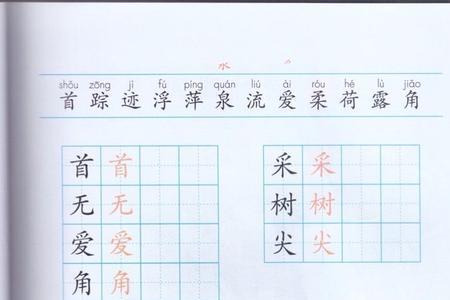 水 ⺈
shǒu zōng jì fú píng quán liú ài róu hé lù jiǎo
首 踪 迹 浮 萍 泉 流 爱 柔 荷 露 角
首 首
无 无
爱 爱
角 角
采 采
树 树
尖 尖